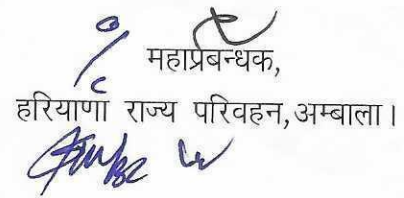 महाप्रबन्धक,
हरियाणा राज्य परिवहन,अम्बाला।